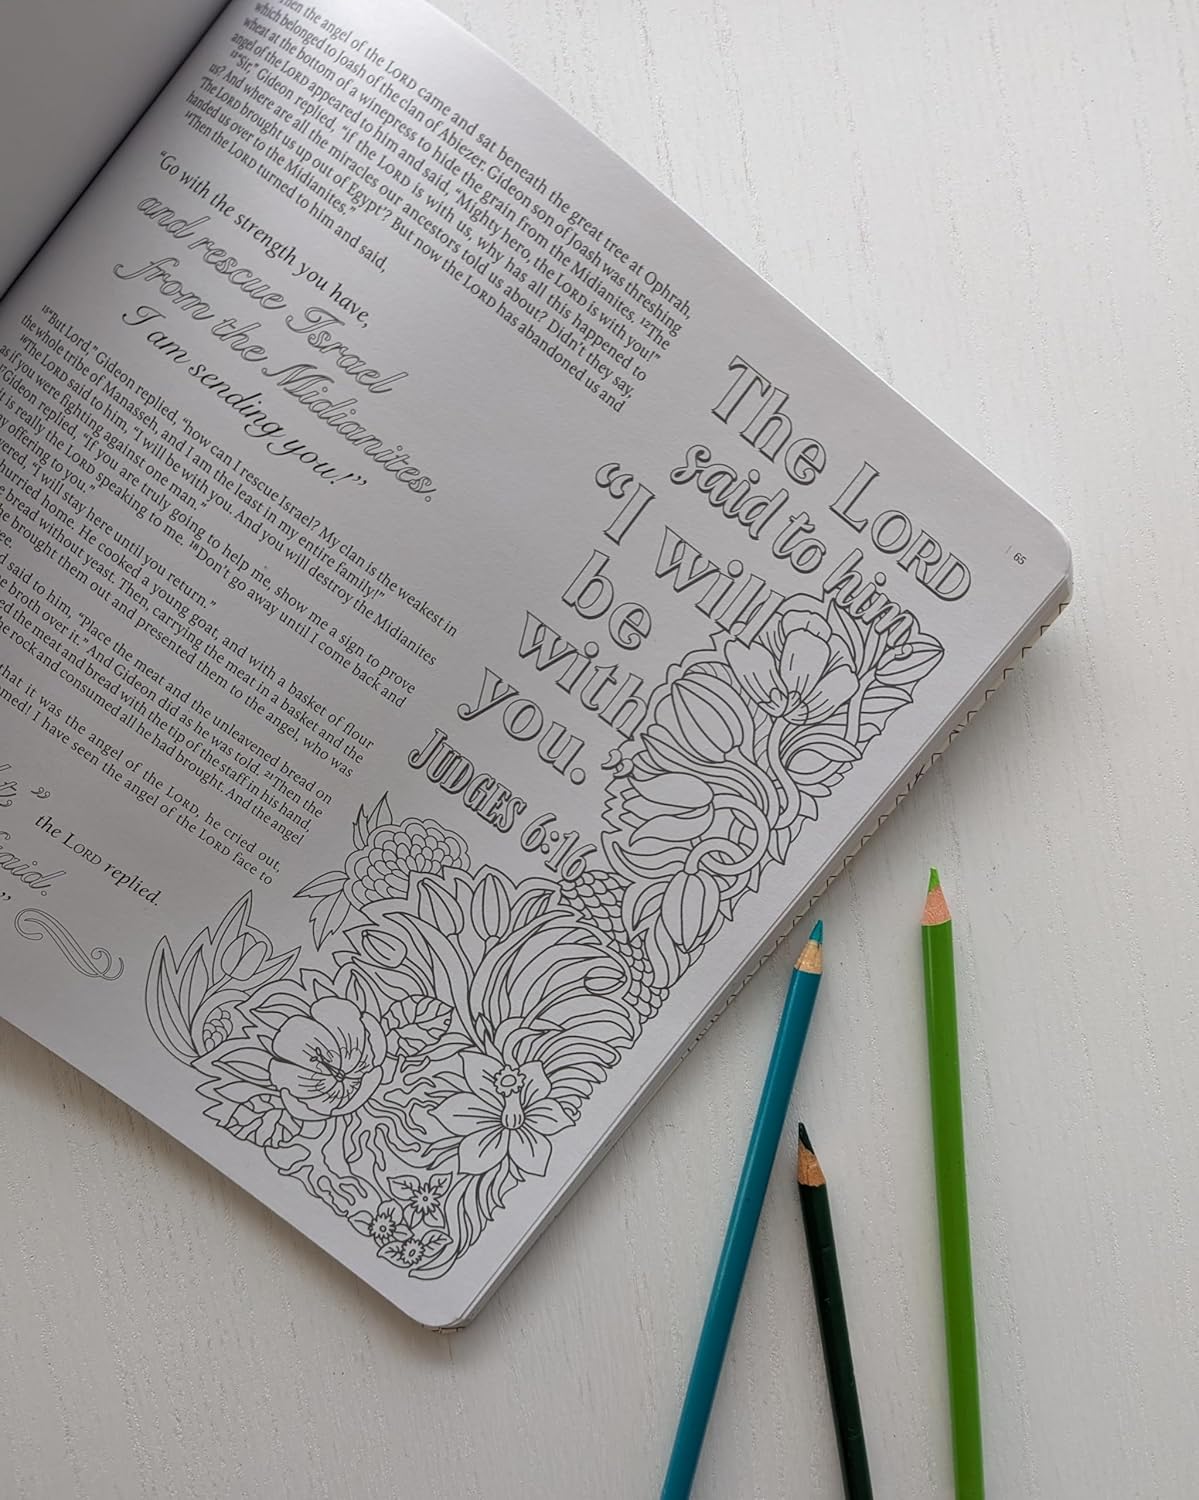 Then the angel of the LORD came and sat beneath the great tree at Ophrah,
which belonged to Joash of the clan of Abiezer. Gideon son of Joash was threshing
wheat at the bottom of a winepress to hide the grain from the Midianites. 12The
angel of the LORD appeared to him and said, “Mighty hero, the LORD is with you!”
13“Sir,” Gideon replied, “If the LORD is with us, why has all this happened to
us? And where are all the miracles our ancestors told us about? Didn’t they say,
‘The LORD brought us up out of Egypt’? But now the LORD has abandoned us and
handed us over to the Midianites.”
14Then the LORD turned to him and said,
“Go with the strength you have,
and rescue Israel
from the Midianites.
I am sending you!”
15“But Lord,” Gideon replied, “how can I rescue Israel? My clan is the weakest in
the whole tribe of Manasseh, and I am the least in my entire family!”
16The LORD said to him, “I will be with you. And you will destroy the Midianites
as if you were fighting against one man.”
Gideon replied, “If you are truly going to help me, show me a sign to prove
it is really the LORD speaking to me. 18Don’t go away until I come back and
offering to you.”
“I will stay here until you return.”
hurried home. He cooked a young goat, and with a basket of flour
bread without yeast. Then, carrying the meat in a basket and the
brought them out and presented them to the angel, who was
said to him, “Place the meat and the unleavened bread on
broth over it.” And Gideon did as he was told. 21Then the
the meat and bread with the tip of the staff in his hand,
rock and consumed all he had brought. And the angel
that it was the angel of the LORD, he cried out,
I have seen the angel of the LORD face to
” the LORD replied.
The LORD
said to him,
“I will
be
with
you.”
JUDGES 6:16
65